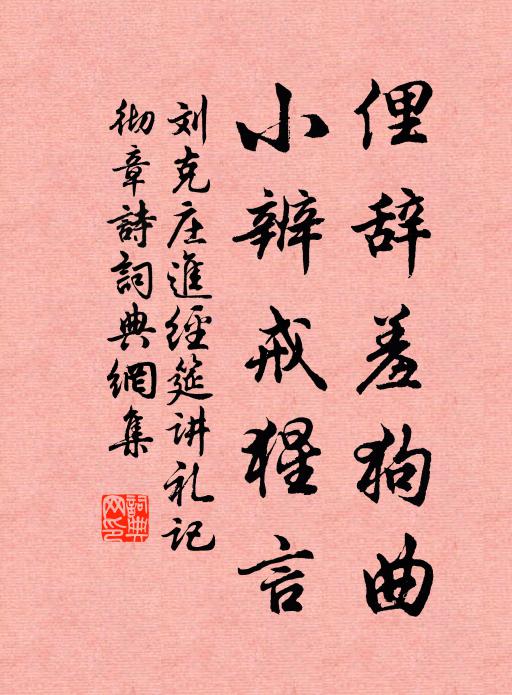 俚辞羞狗曲
小辨戒猩言
刘克庄進經筵讲礼记
彻章詩詞典網集
詞典
网印